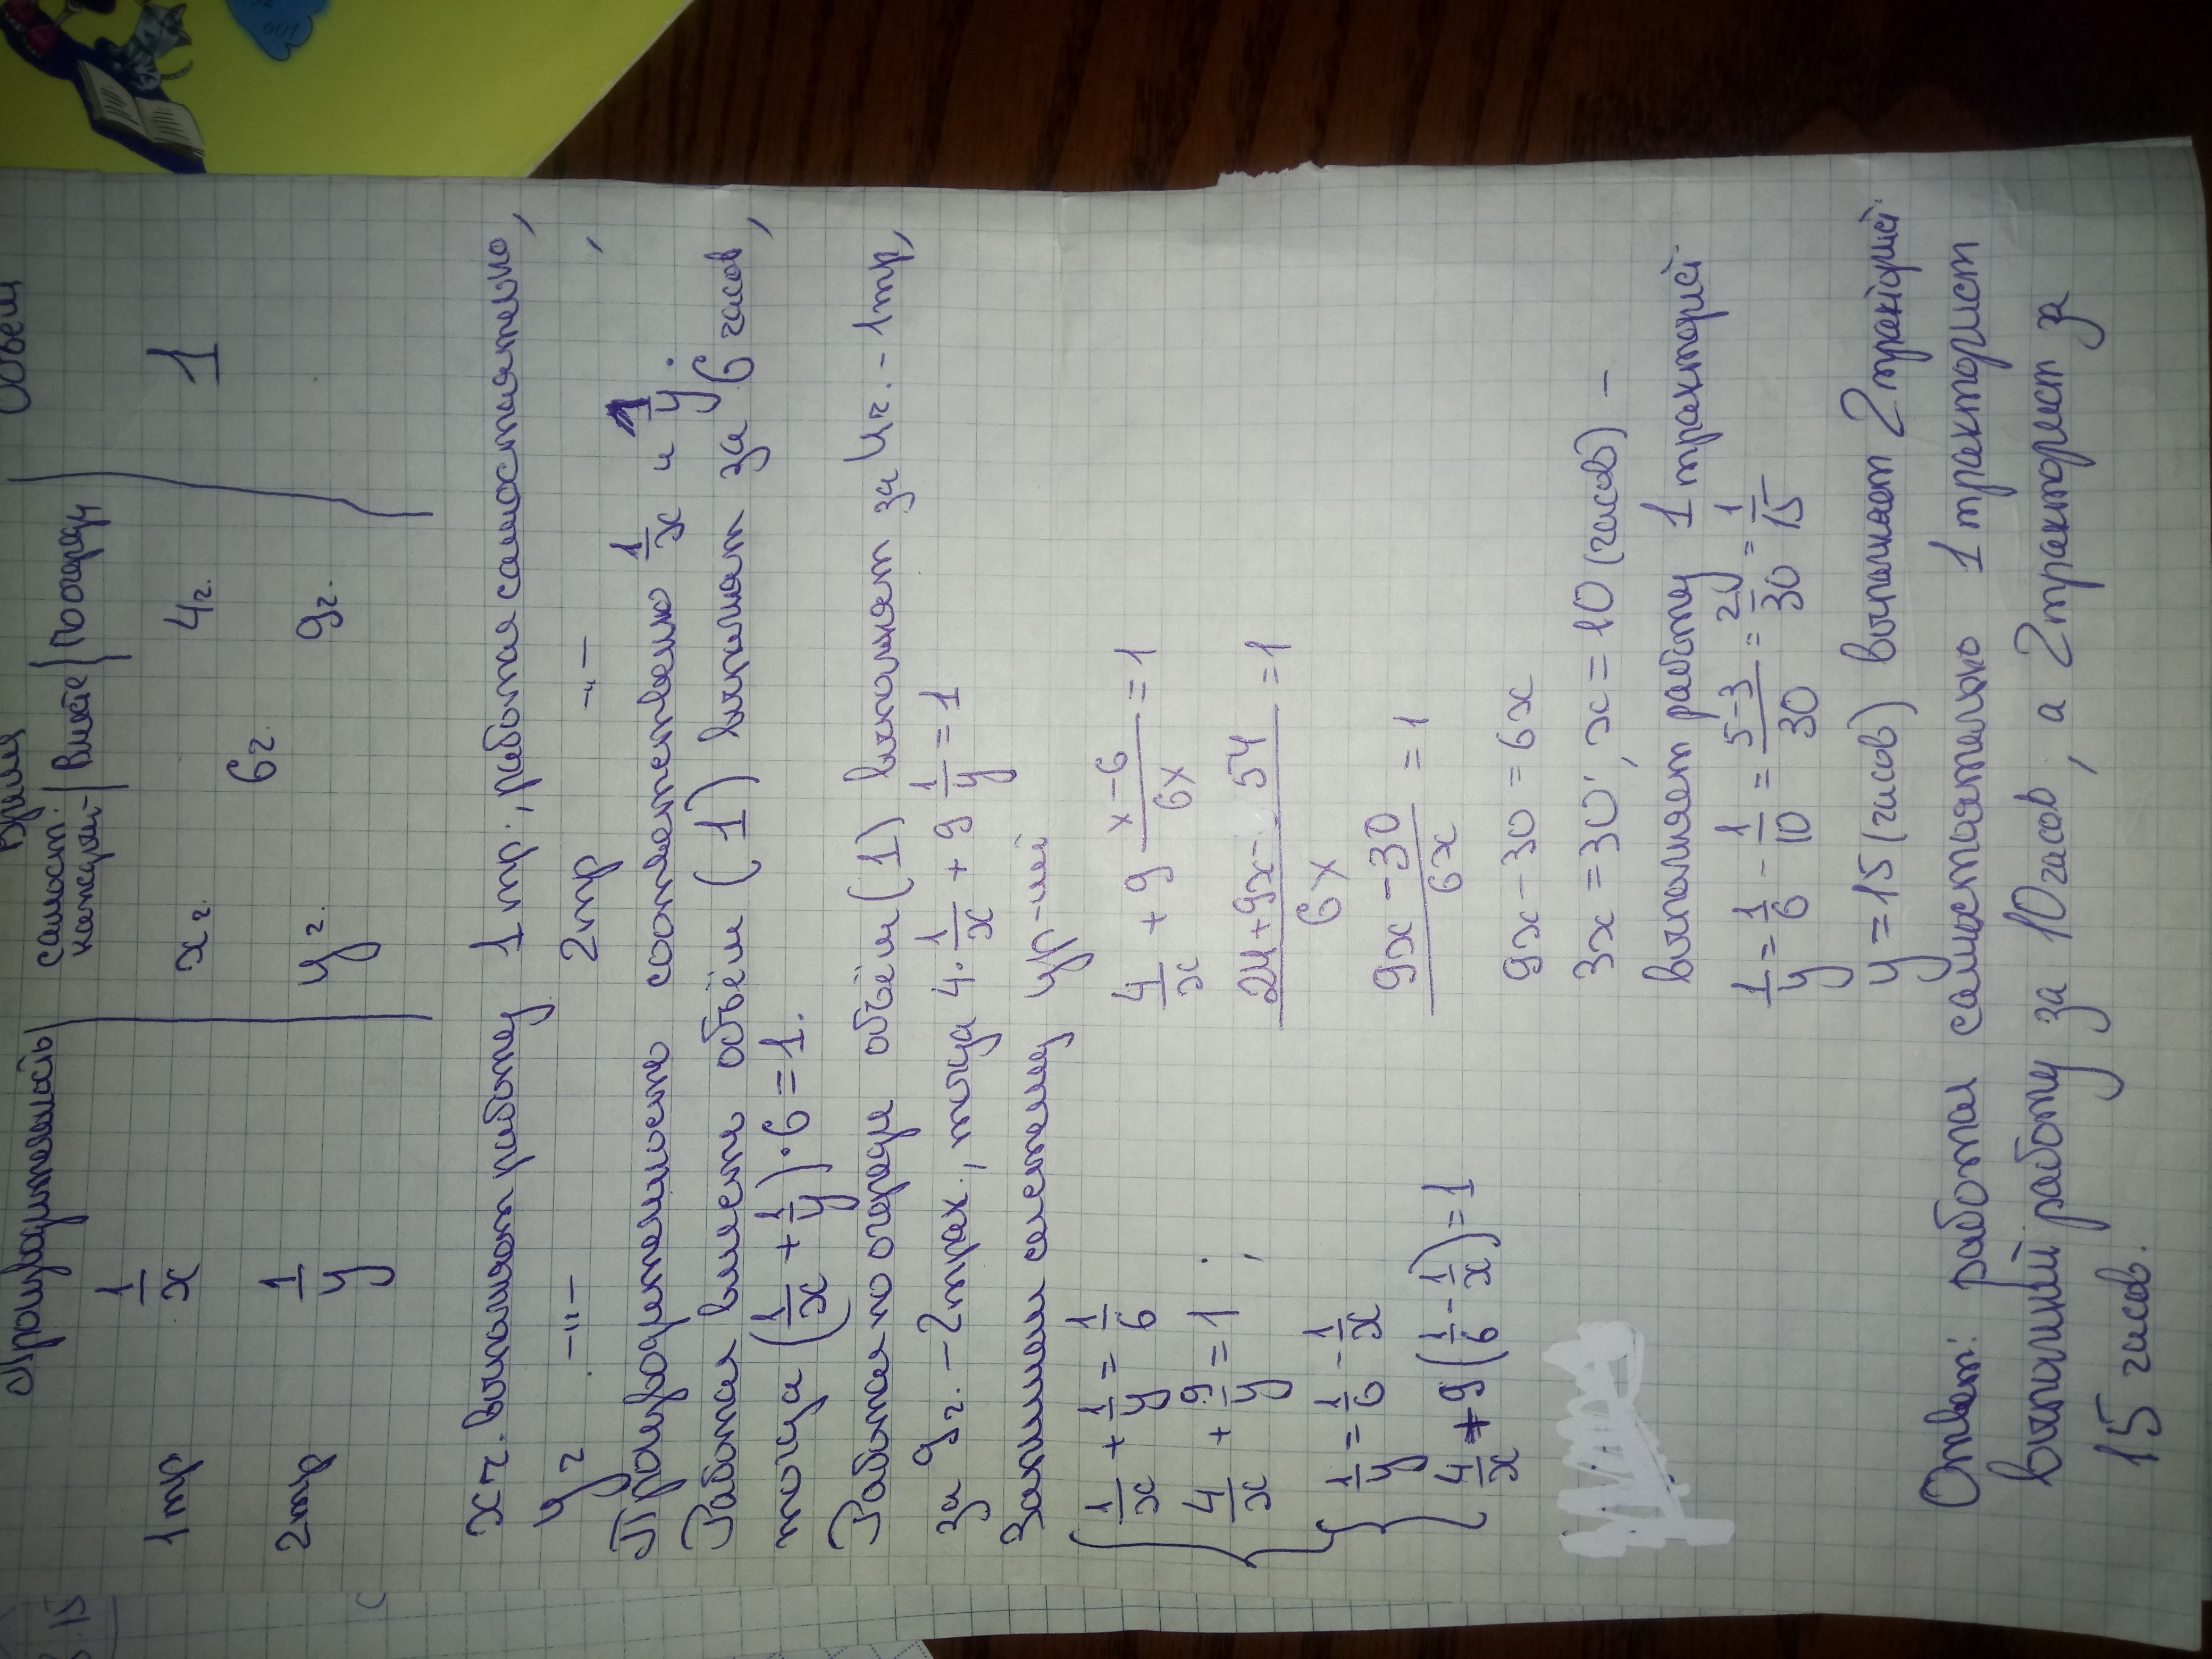 Производительность Время Объём
самост. каждый вместе поочерёдн
1тр 1/x x ч. 4ч. 1
6ч.
2тр 1/y y ч. 9ч.
x ч. выполнит работу 1 тр., работая самостоятельно,
y ч —"— 2тр —"— ,
Производительность соответственно 1/x и 1/y.
Работая вместе объём (1) выполнят за 6 часов,
тогда (1/x + 1/y)·6=1.
Работая по очереди объём (1) выполнят за 4ч. - 1тр,
за 9ч. - 2трак., тогда 4·1/x + 9 1/y = 1
Запишем систему ур-ний
{ 1/x + 1/y = 1/6
4/x + 9/y = 1 ;
{ 1/y = 1/6 - 1/x
4/x + 9(1/6 - 1/x)=1
4/x + 9 x-6/6x = 1
24+9x-54/6x = 1
9x-30/6x = 1
9x-30=6x
3x=30; x=10(часов) -
выполняет работу 1 тракторист
1/y = 1/6 - 1/10 = 5-3/30 = 2/30 = 1/15
y=15(часов) выполняет 2 тракторист
Ответ: работая самостоятельно 1 тракторист
выполнит работу за 10 часов, а 2 тракторист за
15 часов.